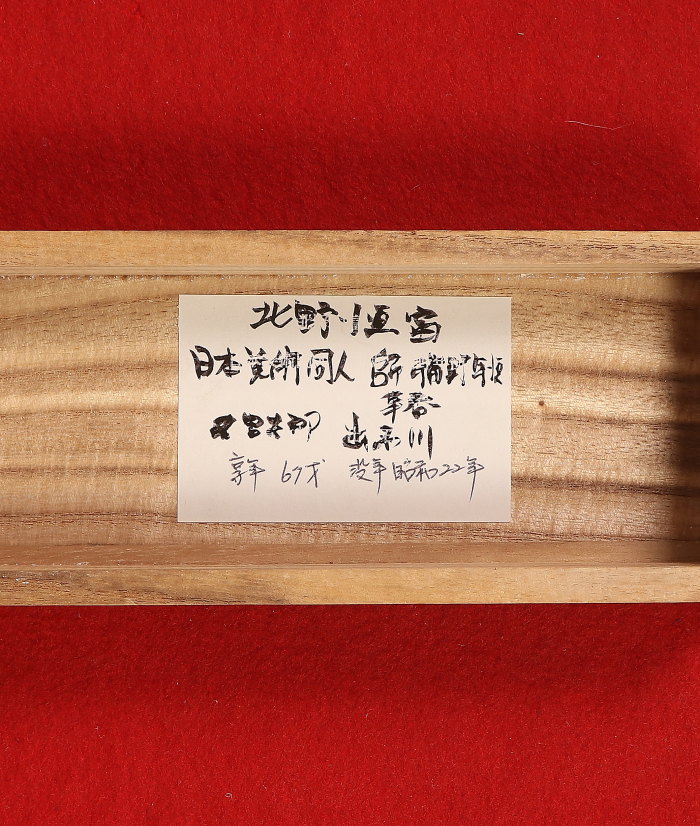 北野恒富
日本美術同人 師 稲野年恒
富太郎 出 石川
享年 67才 没年 昭和22年